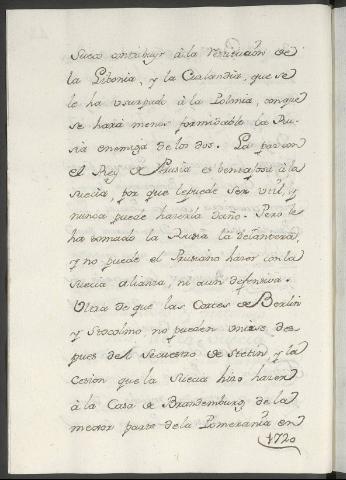 Sueco contribuyr à la restitucion de
la Libonia, y la Curlandia, que se
le ha usurpado à la Polonia, con que
se hará menos formidable la Ru-
sia enemiga de los dos. La paz con
el Rey de Prusia es bentajosa à la
Suecia, por que le puede ser util, y
nunca puede hazerla daño. Pero le
ha tomado la Rusia la delantera,
y no puede el Prusiano hazer con la
Suecia alianza, ni aun defensiva.
Ultra de que las Cortes de Berlin
y Stocolmo no pueden unirse des-
pues del sequestro de Stetin, y la
cesion que la Suecia hizo hazer
à la Casa de Brandemburg de la
mexor parte de la Pomerania en
1720